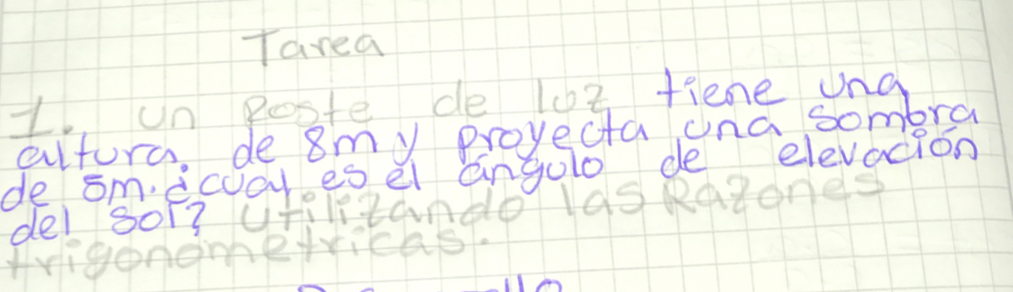 Tarea
1. un Poste de luz tiene una
altura. de 8m y proyecta una sombra
de 5m. ¿cual es el ángulo de elevación
del sol? Utilizando las Razones
trigonometricas.